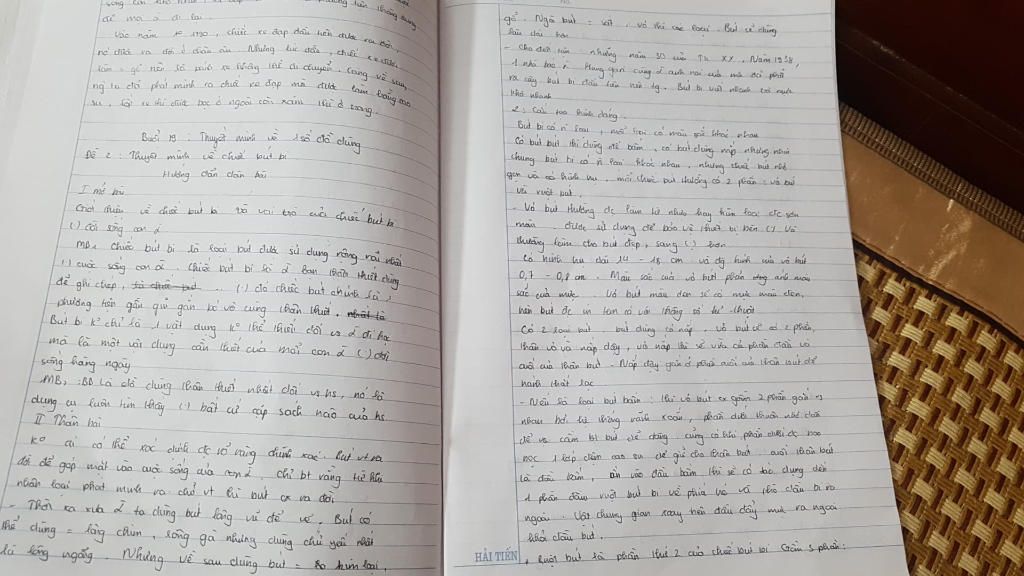 để mọi 2 đi lại.
Vào năm 1790, chiếc xe đạp đầu tiên được ra đời,
nó được ra đời ở đầu âu. Nhưng lúc đầu, chiếc xe được
làm = gỗ nên số
ng ta đã phát minh ra chiếc xe đạp mà được làm bằng cao
su, lốp xe thì được bọc ở ngoài còn xăm thì ở trong.
Buổi 19: Thuyết minh về 1 số đồ dùng
Đề 2: Thuyết minh về chiếc bút bi
Hướng dẫn dàn bài
I mở bài
Giới thiệu về chiếc bút bi và vai trò của chiếc bút bi
(.) đời sống con 2
MB1: Chiếc bút bi là loại bút được sử dụng rộng rãi nhất
(.) cuộc sống con 2. Chiếc bút bi là 2 bạn thân thiết dùng
để ghi chép, (.) đó chiếc bút chính là 1
phương tiện gần gũi gắn bó vô cùng thân thiết.
Bút bi k° chỉ là 1 vật dụng k° thể thiếu đối vs 2 đi học
mà là một vật dụng cần thiết của mỗi con 2 (.) đời
sống hàng ngày
MB2: BB là đồ dùng thân thiết nhất đối vs hs, nó là
dụng cụ luôn tìm thấy (.) bất cứ cặp sách nào của hs
II Thân bài
K° ai có thể xác định đc rõ ràng chính xác. Bút vt ra
đời để góp mặt vào cuộc sống của con 2, chỉ bt rằng từ khi
nhân loại phát minh ra chữ vt thì bút cx ra đời
- Thời xa xưa 2 ta dùng bút lông vũ để vẽ. Bút có
thể dùng = lông chim, lông gà nhưng dùng chủ yếu nhất
là lông ngỗng. Nhưng về sau dùng bút = kim loại,
gỗ. Ngòi bút = sắt, vỏ thì các loại. Bút sẽ dùng
lâu dài hơn
- Cho đến tận những năm 30 của TK XX, Năm 1938,
1 nhà báo n Hungari cùng 2 anh trai của mà đã phát
ra cây bút bi đầu tiên trên tg. Bút bi viết nhanh và mực
khô nhanh
2: Cấu tạo hình dáng.
Bút bi có n loại, mỗi loại có màu sắc khác nhau
Có bút bút thì dùng để bấm, có bút dùng nắp nhưng nhìn
chung bút bi có n loại khác nhau, nhưng chiếc bút nhỏ
gọn và có hình trụ, mỗi chiếc bút thường có 2 phần: vỏ bút
và ruột bút.
- Vỏ bút thường đc làm từ nhựa hay kim loại đc sơn
màu, được sử dụng để bảo vệ thiết bị bên (.). Vỏ
thường làm cho bút đẹp, sang (.) hơn
Có hình trụ dài 14 - 15 cm và đg kính của vỏ bút
0,7 - 0,8 cm. Màu sắc của vỏ biết phân ứng màu
sắc của mực. Vỏ bút màu đen sẽ có mực màu đen,
bút đc in tem có vài thông số kĩ thuật
Có 2 loại bút, bút dùng có nắp, vỏ bút sẽ có 2 phần,
thân vỏ và nắp đậy, và nắp thì sẽ vừa cả phần đầu và
cuối của thân bút. Nắp đậy gắn ở phần cuối của thân bút để
tránh thất lạc
- Nếu là loại bút bấm: thì vỏ bút cx gồm 2 phần gắn vs
nhau bởi hệ thống rãnh xoắn, phần dưới thuôn nhỏ dần
để vs cầm bt bút dễ dàng, cũng có khi phần dưới đc bao
bọc 1 lớp đệm cao su để giữ cho thân bút, cuối thân bút
là đầu bấm, ấn vào đầu bấm thì sẽ có tác dụng đến
1 phần đẩy ruột bút bi về phía và thò đầu bi ra
ngoài. Vật trung gian xoay tiến đầu đẩy mực ra ngoài
khỏi đầu bút.
+ Ruột bút là phần thứ 2 của chiếc bút bi. Gồm 3 phần:
HẢI TIẾN